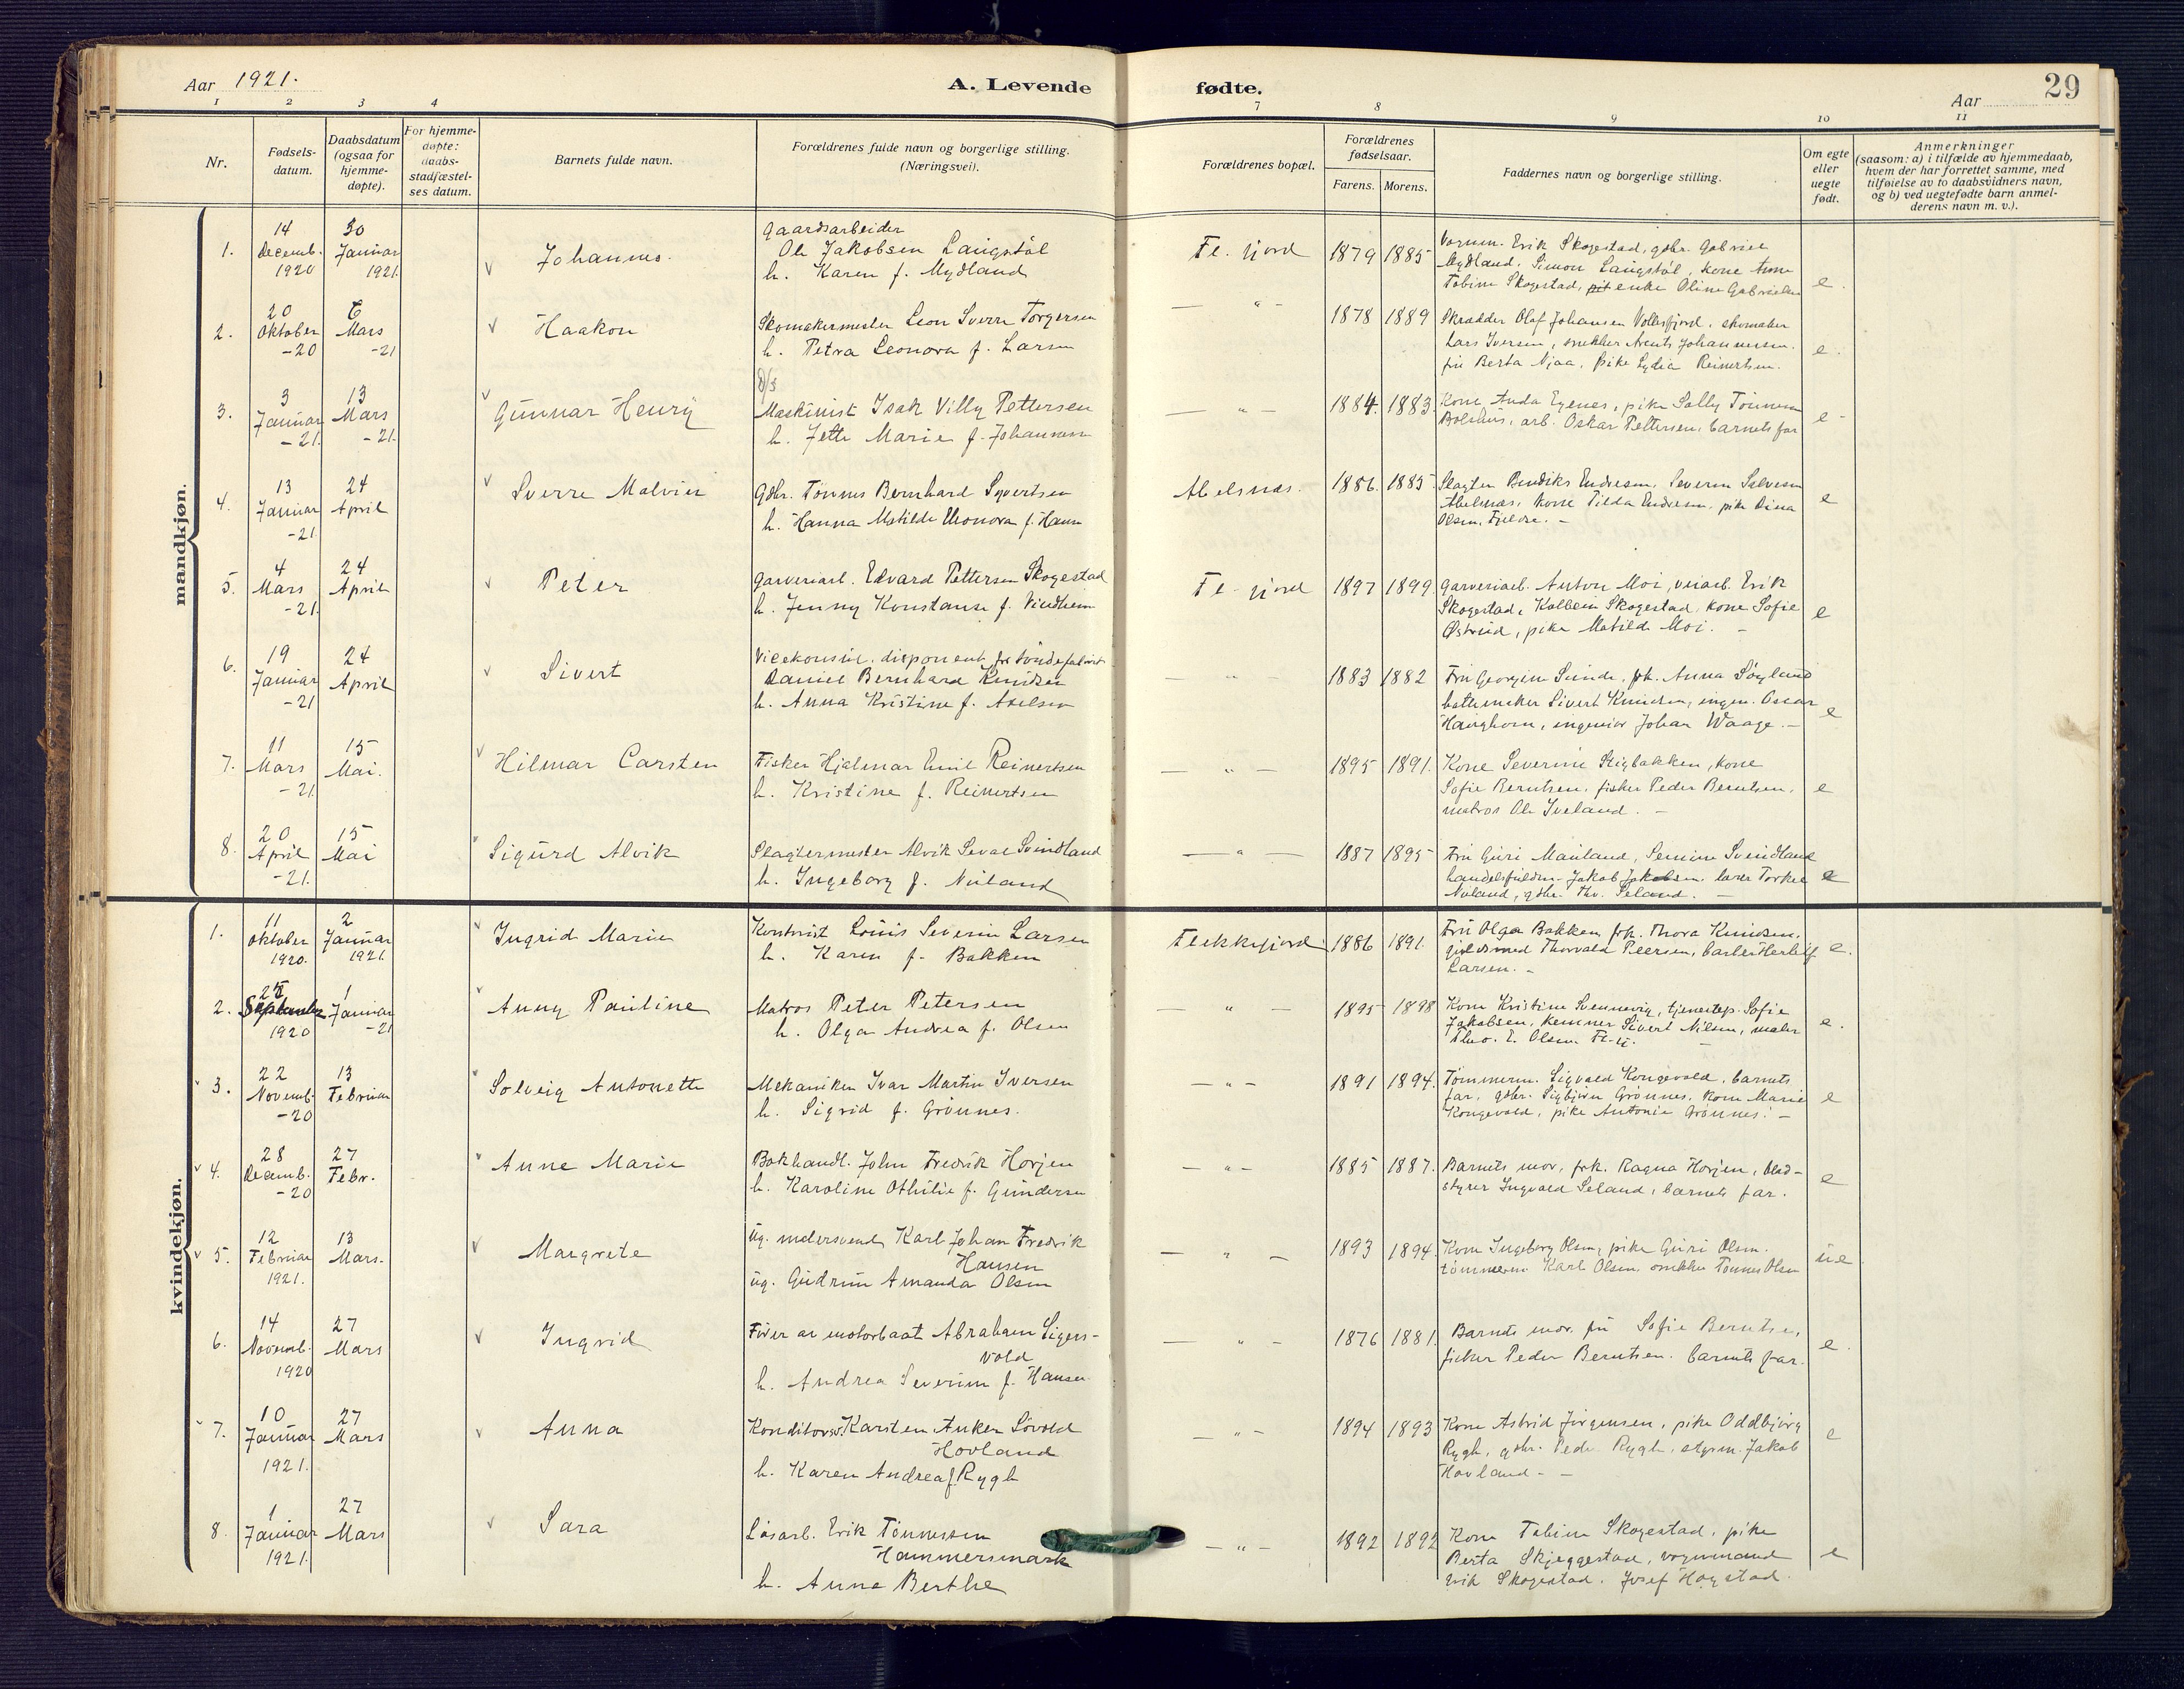 Aar 1921.
A. Levende fødte.
Aar
29
1 2 3 4 7 8 9 10 11
Nr.
Fødsels-
datum.
Daabsdatum
(ogsaa for
hjemme-
døpte).
For hjemme-
døpte:
daabs-
stadfæstel-
ses datum.
Barnets fulde navn.
Forældrenes fulde navn og borgerlige stilling.
(Næringsvei).
Forældrenes bopæl.
Forældrenes
fødselsaar.
Farens. Morens.
Faddernes navn og borgerlige stilling.
Om egte
eller
uegte
født.
Anmerkninger
(saasom: a) i tilfælde av hjemmedaab,
hvem der har forrettet samme, med
tilføielse av to daabsvidners navn,
og b) ved uegtefødte barn anmel-
derens navn m. v.).
mandkjøn.
1.
14
Decemb.
1920
30
Januar
1921.
Johannes.
Gaardsarbeider
Ole Jakobsen Langstøl
h. Karen f. Mydland
Fl. fjord
1879 1885
Vognm. Erik Skogestad, gbr. Gabriel
Mydland, Simon Langstøl, kone Anne
Tobine Skogestad, enke Oline Gabrielsen
e.
2.
20
Oktober
-20
6
Mars
-21
Haakon
Skomakermester Leon Sverre Torgersen
h. Petra Leonora f. Larsen
— " —
1878 1889
Skrædder Olaf Johansen Vollesfjord, skomaker
Lars Iversen, snekker Arents Johannessen,
fru Berta Njaa, pike Lydia Reinertsen.
e.
3.
3
Januar
-21.
13
Mars
-21.
Gunnar Henry
D/S
Maskinist Isak Villy Pettersen
h. Jette Marie f. Johannessen
— " —
1884. 1883.
Kone Anda Egenes, pike Sally Tønnessen
Bolshus, arb. Oskar Pettersen, barnets far
e
4.
13
Januar
-21.
24
April
Sverre Malvin
Gbr. Tønnes Bernhard Syvertsen
h. Hanna Matilde Eleonora f. Hansen
Abelsnæs.
1886. 1885.
Slagter Bendiks Endresen, Severin Salvesen
Abelsnæs, kone Tilda Endresen, pike Dina
Olsen, Fjeldse. —
e
5.
4
Mars
-21.
24
April
Peter
Garveriarb. Edvard Pettersen Skogestad
h. Jenny Konstanse f. Vindheim
Fl. fjord
1897 1899.
Garveriarb. Anton Moi, veiarb. Erik
Skogestad, Kolbein Skogestad, kone Sofie
Østrud, pike Matilde Moi. —
e
6.
19
Januar
-21
24
April
Sivert
Vicekonsul, disponent for tøndefabrik
Daniel Bernhard Knudsen
h. Anna Kristine f. Axelsen
— " —
1883 1882
Fru Georgine Sunde, frk. Anna Søyland
bøttemaker Sivert Knudsen, ingen. Oscar
Haughom, ingeniør Johan Waage. —
e
7.
11
Mars
-21.
15
Mai.
Hilmar Carsten
Fisker Hjalmar Emil Reinertsen
h. Kristine f. Reinertsen
— " —
1895 1891.
Kone Severine Stigbakken, kone
Sofie Berntsen, fisker Peder Berntsen,
matros Ole Iveland. —
e
8.
20
April
-21.
15
Mai
Sigurd Alvik
Slagtermester Alvik Sevae Svindland
h. Ingeborg f. Nuland
— " —
1887 1895
Fru Guri Mauland, Semine Svindland
handelsfuldm. Jakob Jakobsen, lærer Torkel
Nuland, gbr. Thv. Seland. —
e
kvindekjøn.
1.
11
Oktober
1920.
2
Januar
1921.
Ingrid Marie
Kontorist Louis Severin Larsen
h. Karen f. Bakken
Flekkefjord.
1886 1891.
Fru Olga Bakken, frk. Thora Knudsen,
guldsmed Thorvald Peersen, barber Herleif
Larsen. —
e.
2.
September
1920
1
Januar
-21
Anny Pauline
Matros Peter Petersen
h. Olga Andrea f. Olsen
— " —
1895 1898
Kone Kristine Svennevig, tjenestep. Sofie
Jakobsen, kemner Sivert Nilsen, maler
Theo. E. Olsen. Fl.fj. —
e.
3.
22
Novemb.
-20
13
Februar
Solveig Antonette
Mekaniker Ivar Martin Iversen
h. Sigrid f. Grønnes.
— " —
1891 1894.
Tømmerm. Sigvald Kongevold, barnets
far, gbr. Sigbjørn Grønnes, kone Marie
Kongevold, pike Antonie Grønnes. —
e
4.
28
Decemb.
-20
27
Febr.
Anne Marie
Bokhandl. John Fredrik Horjen
h. Karoline Othilie f. Gundersen
— " —
1885 1887.
Barnets mor, frk. Ragna Horjen, blad-
styrer Ingvald Seland, barnets far.
e
5.
12
Februar
1921.
13
Mars.
Margrete
Ug. malersvend Karl Johan Fredrik
Hansen
ug. Gudrun Amanda Olsen
— " —
1893 1894.
Kone Ingeborg Olsen, pike Guri Olsen.
tømmerm. Karl Olsen, snekker Tønnes Olsen
ue
6.
14
Novemb.
1920
27
Mars
Ingrid
Fører av motorbaat Abraham Sigers-
vold
h. Andrea Severine f. Hansen
— " —
1876 1881.
Barnets mor, fru Sofie Berntsen,
fisker Peder Berntsen. barnets far.
e.
7.
10
Januar
1921.
27
Mars
Anna
Konditorsv. Karsten Anker Søvold
Hovland
h. Karen Andrea f. Rygh
— " —
1894 1893
Kone Astrid Jørgensen, pike Oddbjørg
Rygh, gbr. Peder Rygh, styrm. Jakob
Hovland — —
e
8.
1
Januar
1921.
27
Mars
Sara
Løsarb. Erik Tønnessen
Hammersmark
h. Anna Berthe
— " —
1892 1892
Kone Tobine Skogestad, pike
Berta Skjeggestad, vognmand
Erik Skogestad. Josef Høgstad.
e